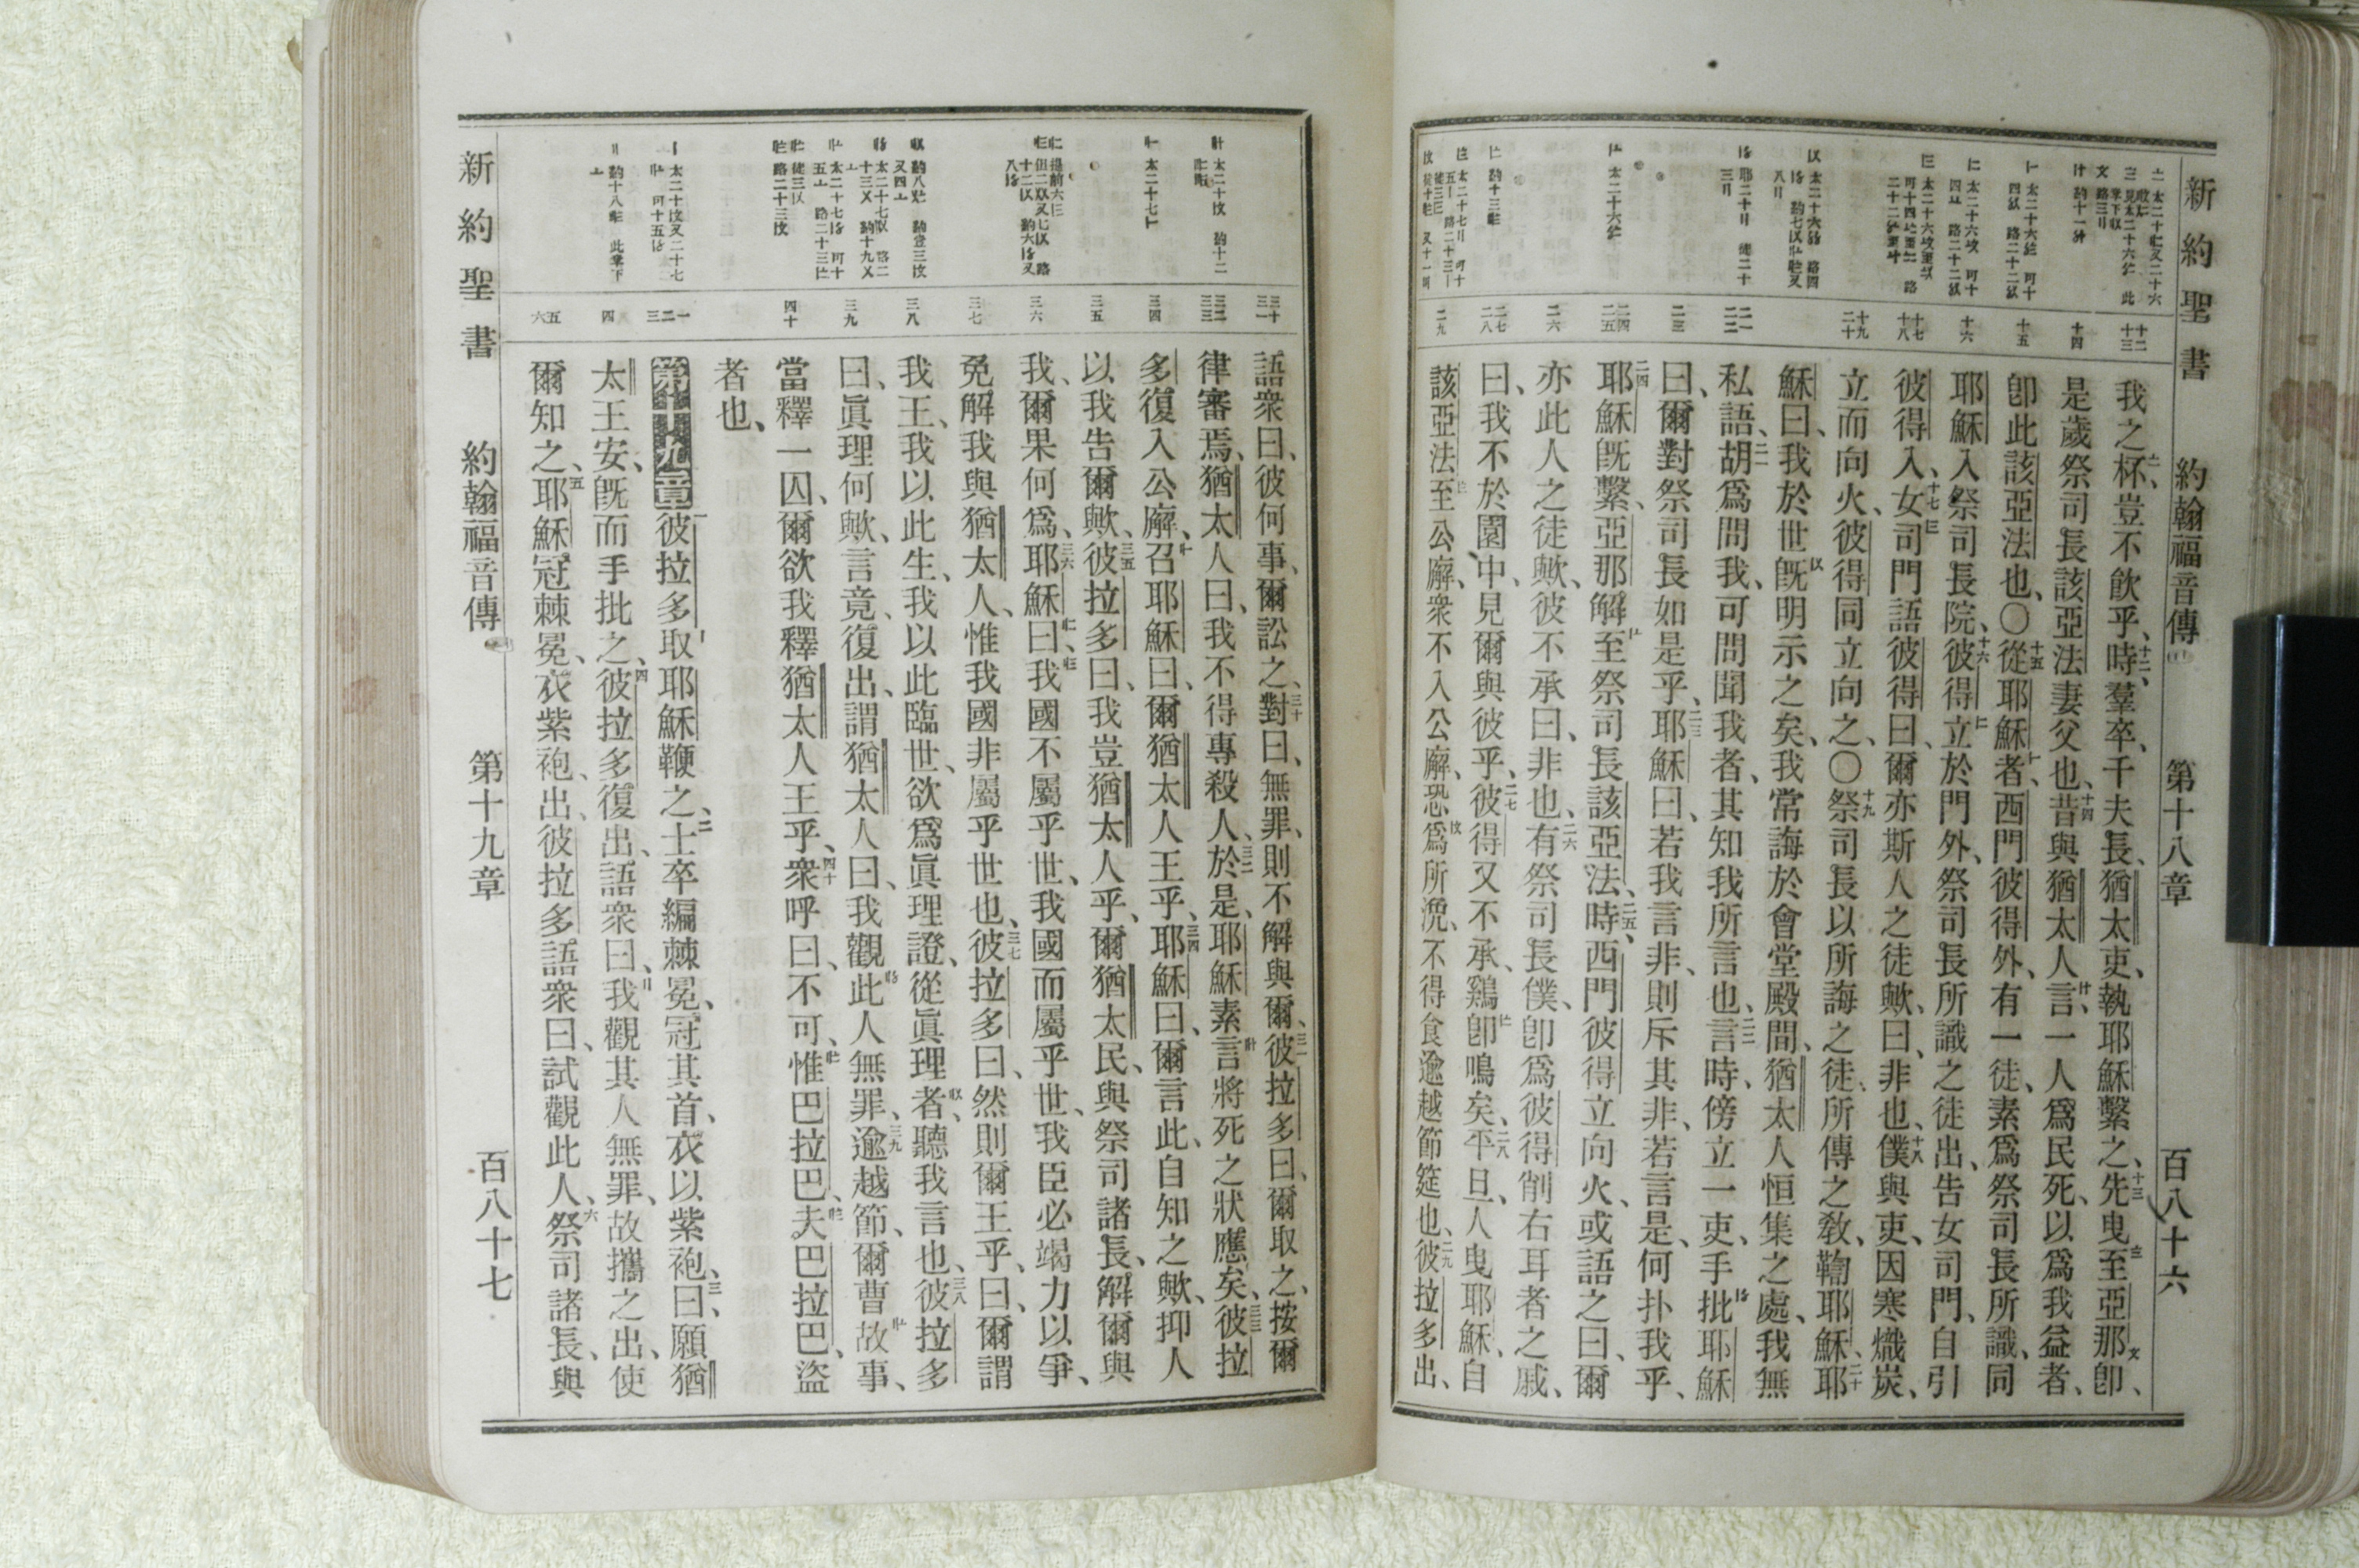 新約聖書 約翰福音傳 第十八章 百八十六
十二 十三
十四
十五
十六
十七 十八
十九 二十
二一 二二
二三
二四 二五
二六
二七 二八
二九
我之杯、豈不飮乎、十二時、羣卒、千夫長、猶太吏、執耶穌繫之、十三先曳至亞那、卽
是歲祭司長該亞法妻父也、十四昔與猶太人言、一人爲民死、以爲我益者、
卽此該亞法也、〇十五從耶穌者、西門彼得外、有一徒、素爲祭司長所識、同
耶穌入祭司長院、十六彼得立於門外、祭司長所識之徒出、告女司門、自引
彼得入、十七女司門語彼得曰、爾亦斯人之徒歟、曰、非也、十八僕與吏、因寒熾炭、
立而向火、彼得同立向之、〇十九祭司長以所誨之徒、所傳之敎、鞫耶穌、二十耶
穌曰、我於世旣明示之矣、我常誨於會堂殿間、猶太人恒集之處、我無
私語、二一胡爲問我、可問聞我者、其知我所言也、二二言時、傍立一吏、手批耶穌
曰、爾對祭司長如是乎、二三耶穌曰、若我言非、則斥其非、若言是、何扑我乎、
二四耶穌旣繫、亞那解至祭司長該亞法、二五時、西門彼得立向火、或語之曰、爾
亦此人之徒歟、彼不承曰、非也、二六有祭司長僕、卽爲彼得削右耳者之戚、
曰、我不於園中、見爾與彼乎、二七彼得又不承、鷄卽鳴矣、二八平旦、人曳耶穌、自
該亞法至公廨、衆不入公廨、恐爲所浼、不得食逾越節筵也、二九彼拉多出、
三十 三一
三二 三三
三四
三五
三六
三七
三八
三九
四十
一 二 三
四
五 六
語衆曰、彼何事、爾訟之、三十對曰、無罪、則不解與爾、三一彼拉多曰、爾取之、按爾
律審焉、猶太人曰、我不得專殺人、三二於是、耶穌素言將死之狀應矣、三三彼拉
多復入公廨、召耶穌曰、爾猶太人王乎、三四耶穌曰、爾言此、自知之歟、抑人
以我告爾歟、三五彼拉多曰、我豈猶太人乎、爾猶太民、與祭司諸長、解爾與
我、爾果何爲、三六耶穌曰、我國不屬乎世、我國而屬乎世、我臣必竭力以爭、
免解我與猶太人、惟我國非屬乎世也、三七彼拉多曰、然則爾王乎、曰、爾謂
我王、我以此生、我以此臨世、欲爲眞理證、從眞理者、聽我言也、三八彼拉多
曰、眞理何歟、言竟、復出、謂猶太人曰、我觀此人無罪、三九逾越節、爾曹故事、
當釋一囚、爾欲我釋猶太人王乎、四十衆呼曰、不可、惟巴拉巴、夫巴拉巴、盜
者也、
第十九章 一彼拉多取耶穌鞭之、二士卒編棘冕、冠其首、衣以紫袍、三曰、願猶
太王安、旣而手批之、四彼拉多復出、語衆曰、我觀其人無罪、故攜之出、使
爾知之、五耶穌冠棘冕、衣紫袍、出、彼拉多語衆曰、試觀此人、六祭司諸長、與
新約聖書 約翰福音傳 第十九章 百八十七